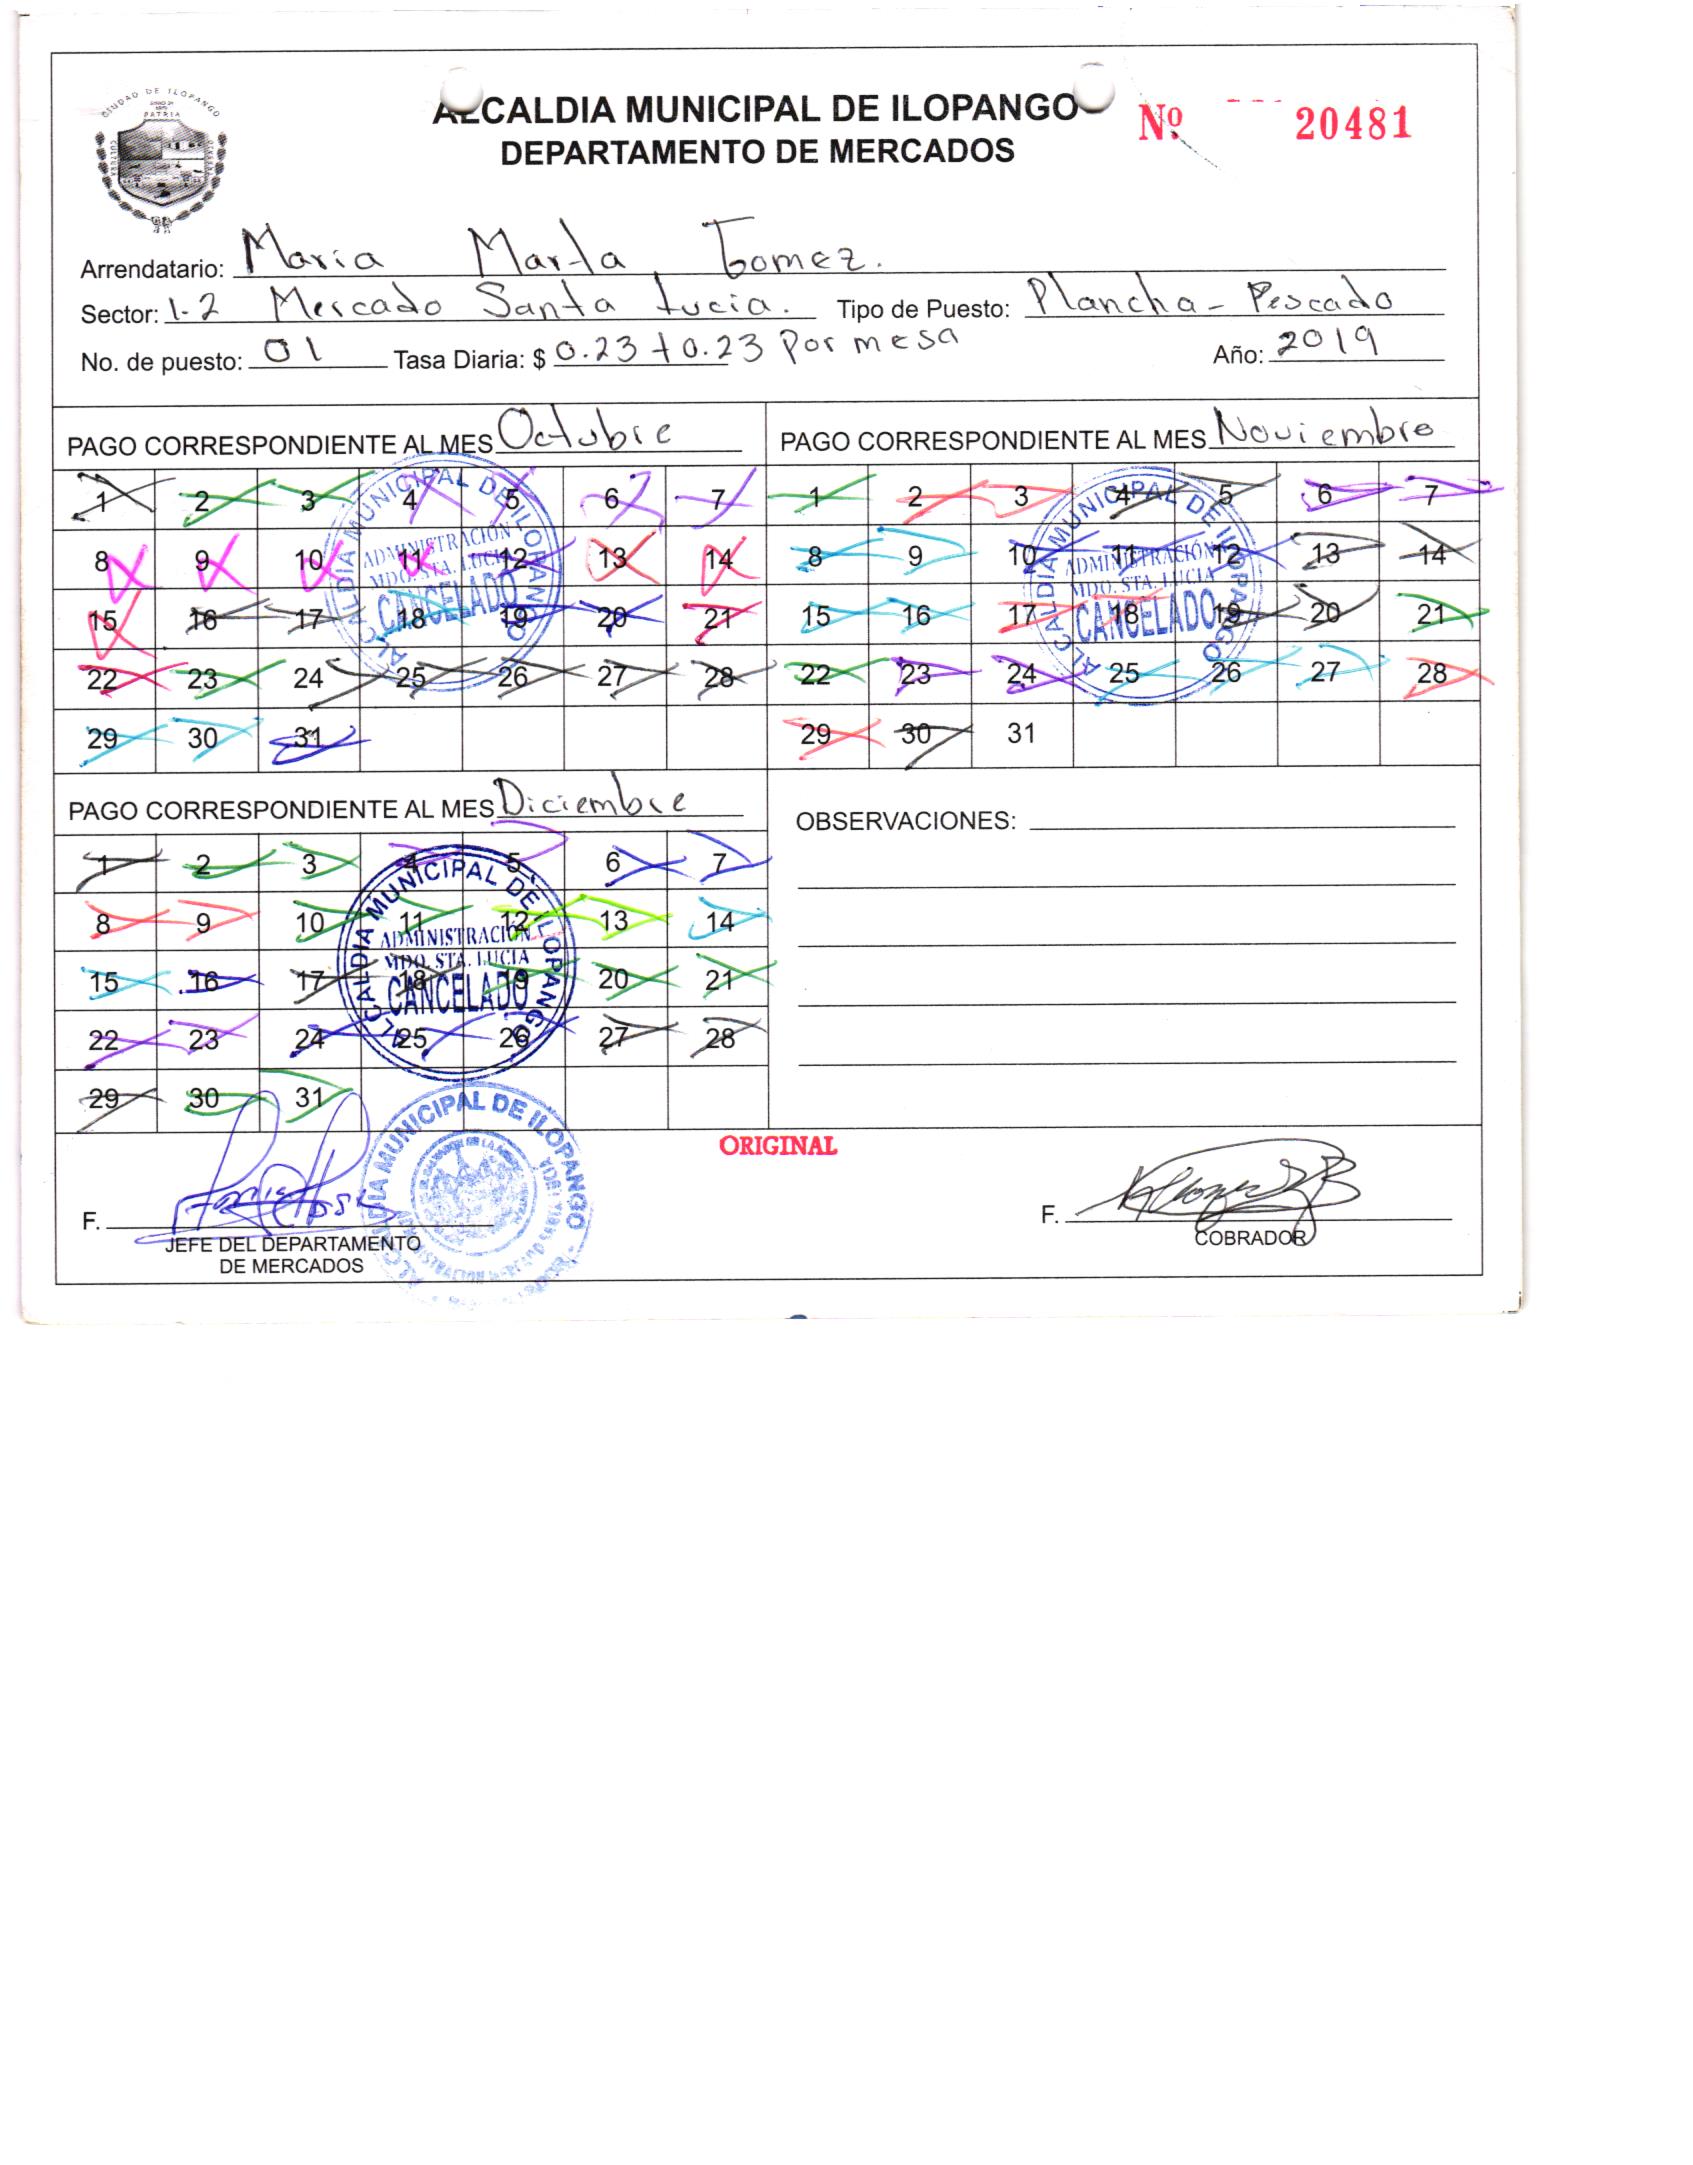 CIUDAD DE ILOPANGO
PATRIA
CULTURA
ALCALDIA MUNICIPAL DE ILOPANGO
DEPARTAMENTO DE MERCADOS
Nº 20481
Arrendatario: Maria Marta Gomez.
Sector: 1-2 Mercado Santa Lucia. Tipo de Puesto: Plancha - Pescado
No. de puesto: 01 Tasa Diaria: $ 0.23 + 0.23 Por mesa Año: 2019
PAGO CORRESPONDIENTE AL MES Octubre
1 2 3 4 5 6 7
8 9 10 11 12 13 14
15 16 17 18 19 20 21
22 23 24 25 26 27 28
29 30 31
ALCALDIA MUNICIPAL DE ILOPANGO
ADMINISTRACIÓN
MDO. STA. LUCIA
CANCELADO
PAGO CORRESPONDIENTE AL MES Noviembre
1 2 3 4 5 6 7
8 9 10 11 12 13 14
15 16 17 18 19 20 21
22 23 24 25 26 27 28
29 30 31
ALCALDIA MUNICIPAL DE ILOPANGO
ADMINISTRACIÓN
MDO. STA. LUCIA
CANCELADO
PAGO CORRESPONDIENTE AL MES Diciembre
1 2 3 4 5 6 7
8 9 10 11 12 13 14
15 16 17 18 19 20 21
22 23 24 25 26 27 28
29 30 31
ALCALDIA MUNICIPAL DE ILOPANGO
ADMINISTRACIÓN
MDO. STA. LUCIA
CANCELADO
OBSERVACIONES:
ORIGINAL
F.
JEFE DEL DEPARTAMENTO
DE MERCADOS
ALCALDIA MUNICIPAL DE ILOPANGO
F.
COBRADOR